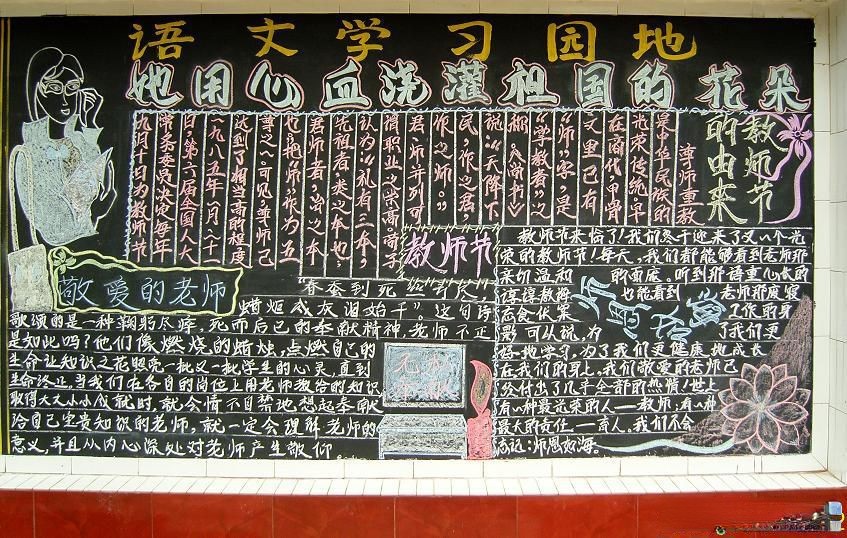 语文学习园地
她用心血浇灌祖国的花朵
教师节
的由来
尊师重教
是中华民族的
光荣传统，早
在商代，甲骨
文里已有
“师”字，是
“学教者”之
称。《尚书》
说：“天降下
民，作之君，
作之师。”
君、师并列可
谓职业之崇高。荀子
认为：“礼有三本”，
先祖者，类之本也，
君师者，治之本
也，把“师”作为五
等之一。可见，尊师已
达到了相当高的程度
一九八五年一月二十一
日，第六届全国人大
常委会决定每年
九月十日为教师节
教师节
敬爱的老师
“春蚕到死丝方尽，
蜡炬成灰泪始干”，这句诗
歌颂的是一种鞠躬尽瘁，死而后已的奉献精神，老师不正
是如此吗？他们像燃烧的蜡烛，点燃自己的
生命让知识之花照亮一批又一批学生的心灵，直到
生命终止，当我们在各自的岗位上用老师教给的知识
取得大大小小成就时，就会情不自禁地想起奉献
给自己宝贵知识的老师，就一定会理解老师的
意义，并且从内心深处对老师产生敬仰
教师节来临了！我们终于迎来了又一个光
荣的教师节！每天，我们都能够看到老师那
亲切温和的面庞。听到那语重心长的
谆谆教诲 也能看到 老师那废寝
忘食伏案 工作的身
影 可以说，为 了我们更
好地学习，为了我们更健康地成长
在我们的身上，我们敬爱的老师已
经付出了几乎全部的热情！世上
有一种最光荣的人——教师；有一种
最大的责任——育人。我们不会
忘记：师恩如海。